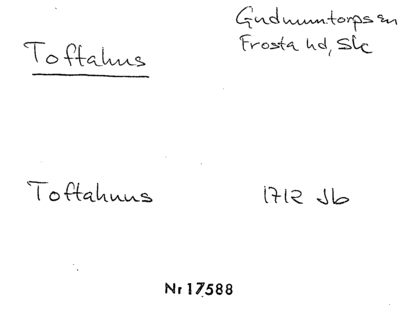 Toftahus
Gudmuntorps sn
Frosta hd, Sk
Toftahuus
1712 Jb
Nr 17588